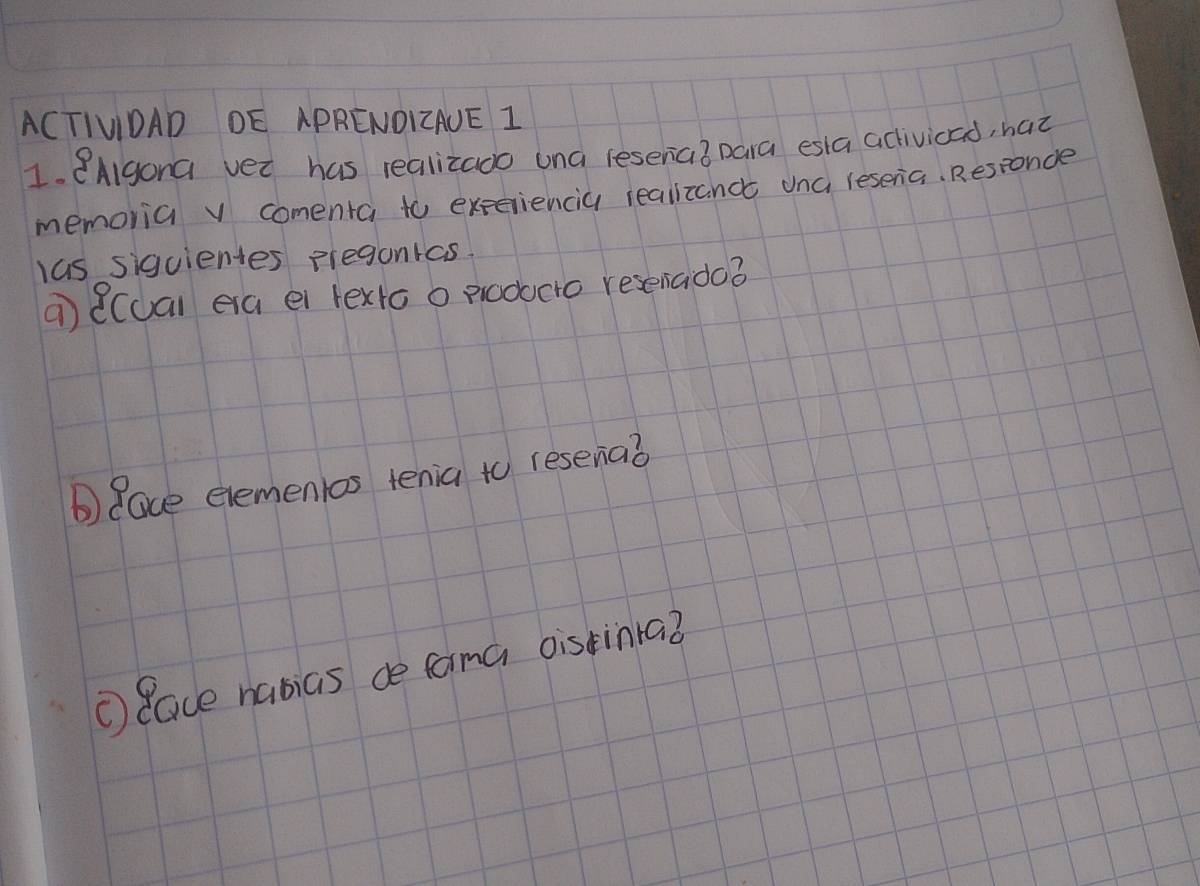 ACTIVIDAD DE APRENDIZAJE 1
1. ¿Alguna vez has realizado una reseña? Para esta actividad, haz
memoria y comenta tu experiencia realizando una reseña. Responde
las siguientes preguntas.
a) ¿Cual era el texto o producto reseñado?
b) ¿Que elementos tenia tu reseña?
c) ¿Que habias de forma distinta?